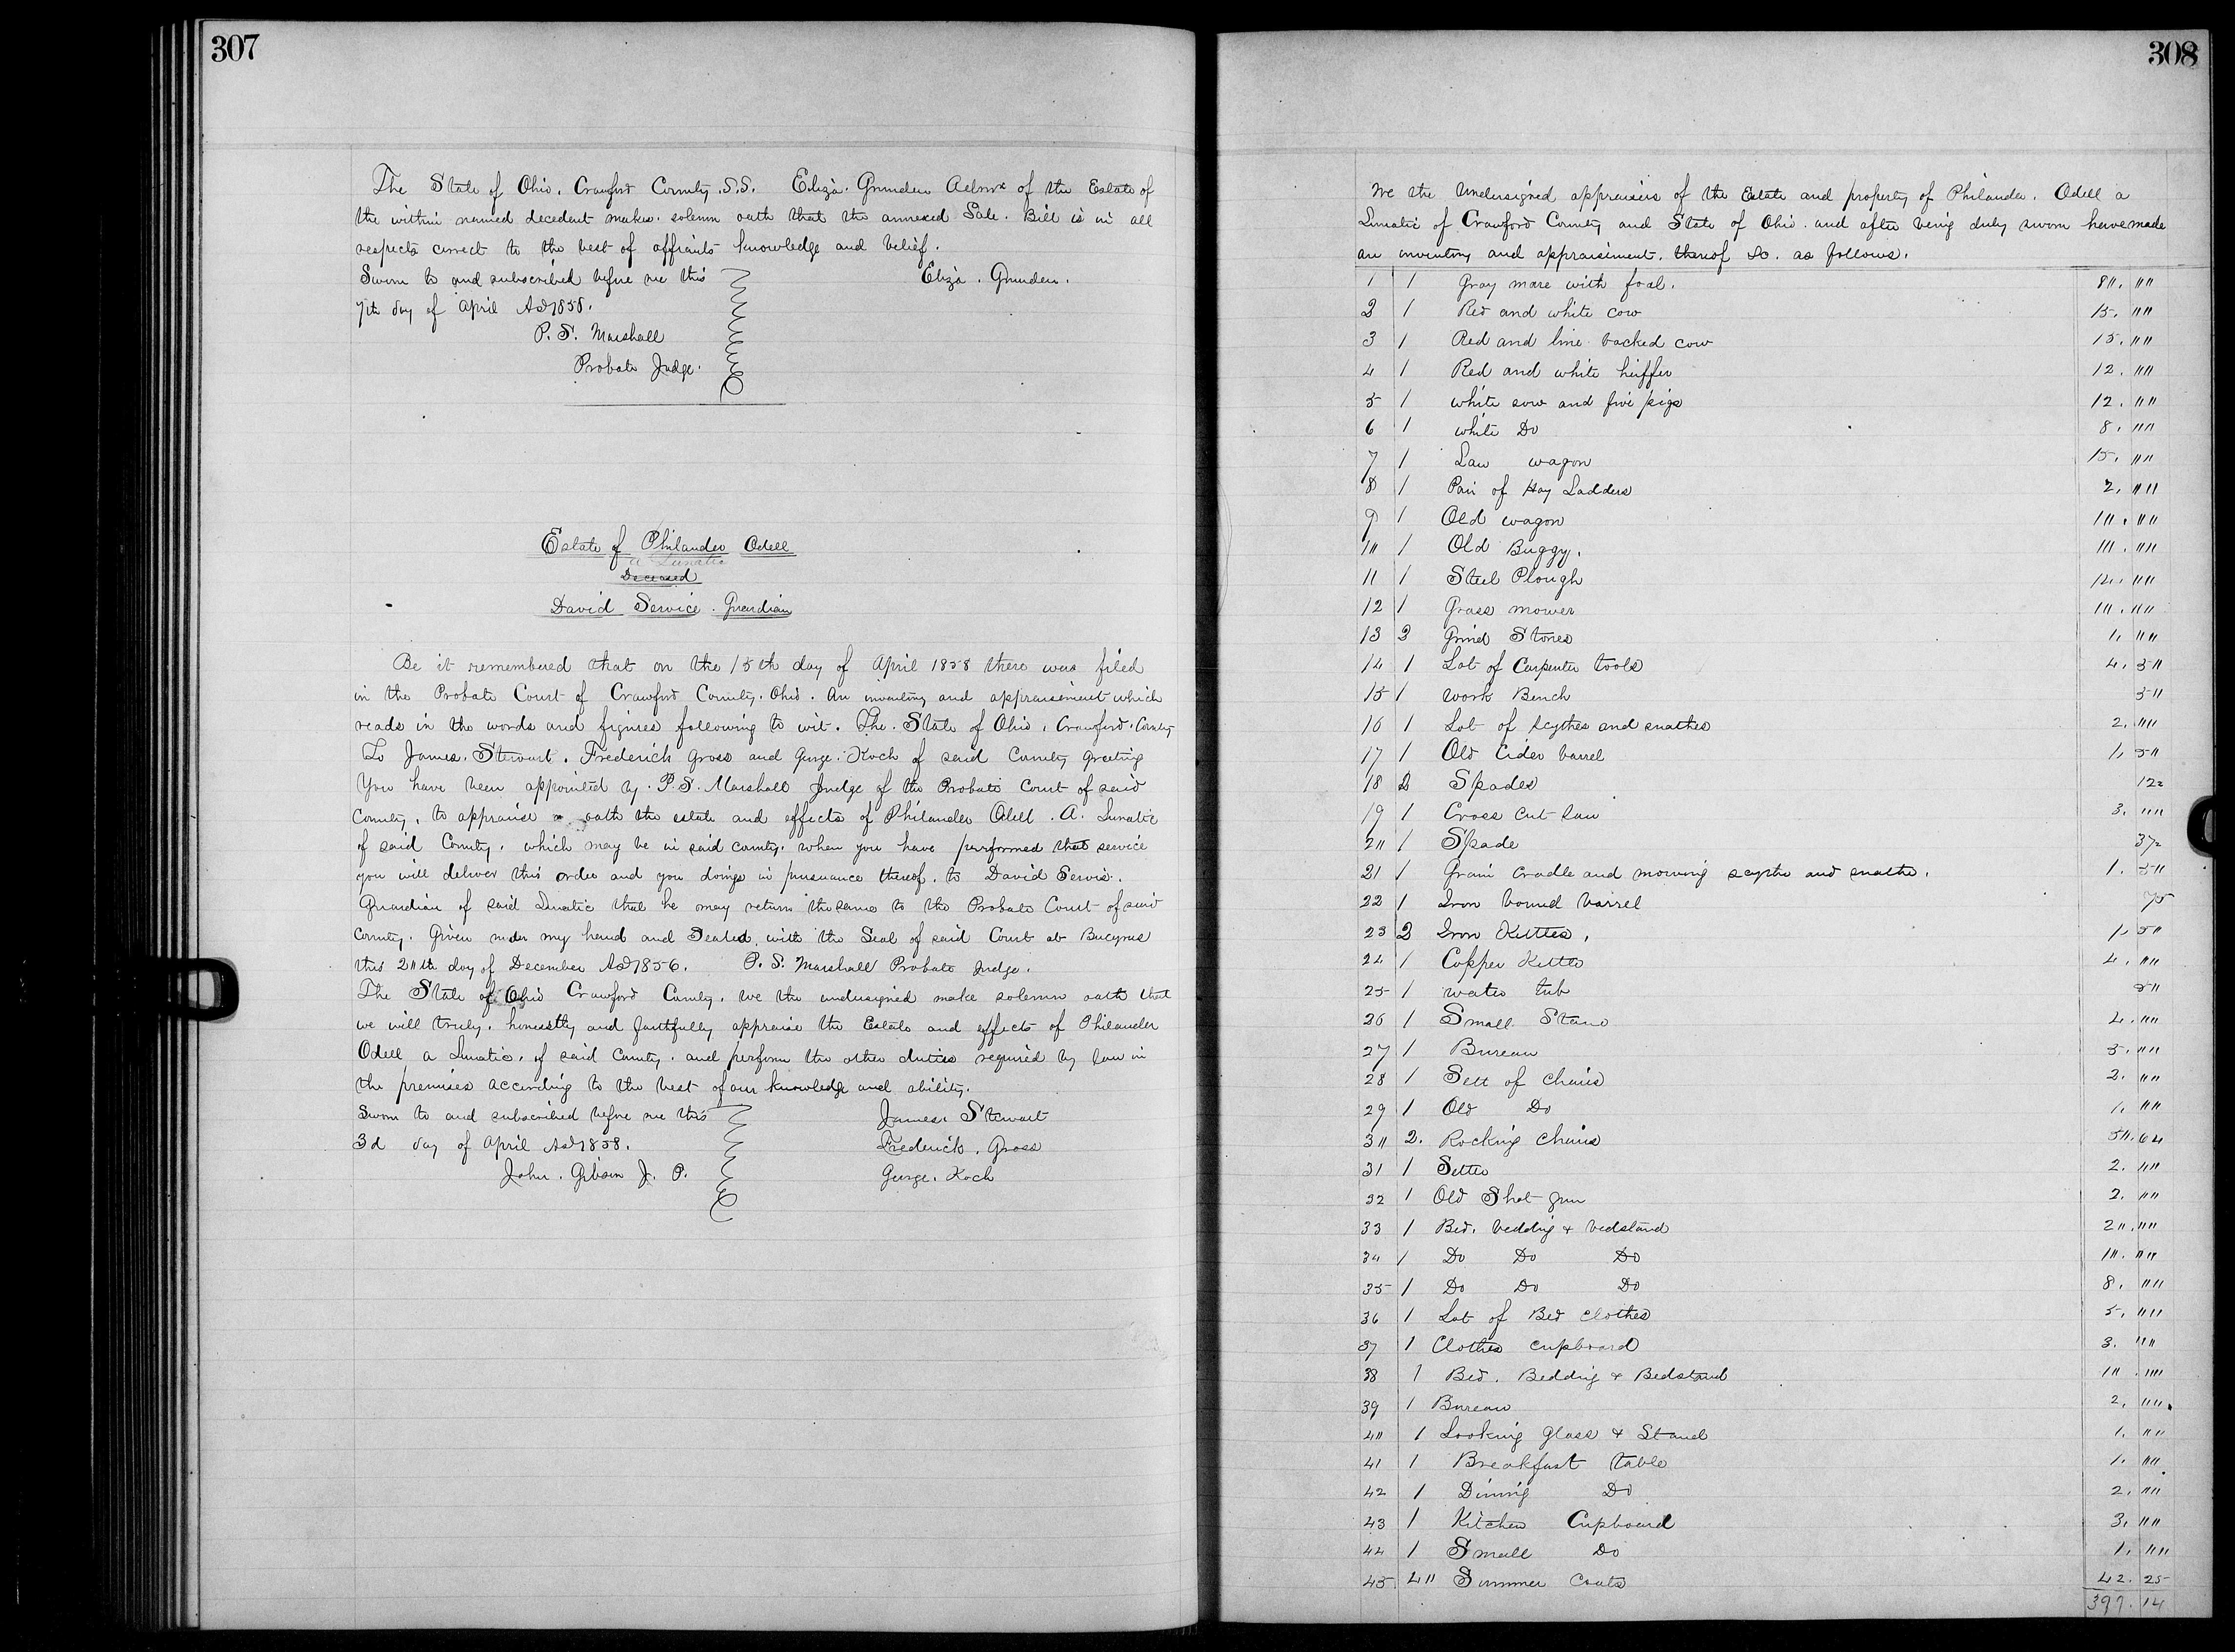 307
The State of Ohio. Crawford County. S.S. Eliza. Grunden Admx of the Estate of
the within named decedent makes. solemn oath that the annexed Sale. Bill is in all
respects correct to the best of affiants knowledge and belief.
Sworn to and subscribed before me this Eliza. Grunden.
7th day of April AD 1858.
P. S. Marshall
Probate Judge.
Estate of Philander Odell
a Lunatic
Deceased
David Service. Guardian
Be it remembered that on the 15th day of April 1858 there was filed
in the Probate Court of Crawford County. Ohio. An inventory and appraisement which
reads in the words and figures following to wit. The. State of Ohio, Crawford. County
To James. Stewart. Frederich Gross and George. Koch of said County Greeting
You have been appointed by. P. S. Marshall Judge of the Probate Court of said
County, to appraise oath the estate and effects of Philander Odell. A. Lunatic
of said County, which may be in said county. when you have performed that service
you will deliver this order and you doings in pursuance thereof. to David Servis.
Guardian of said Lunatic that he may return the same to the Probate Court of said
County. Given under my hand and Sealed, with the Seal of said Court at Bucyrus
this 2"th day of December AD 1856. P. S. Marshall Probate Judge.
The State of Ohio Crawford County. we the undersigned make solemn oath that
we will truly. honestly and faithfully appraise the Estate and effects of Philander
Odell a Lunatic. of said County. and perform the other duties required by law in
the premises according to the best of our knowledge and ability.
Sworn to and subscribed before me this James. Stewart
3d day of April AD 1858. Frederich. Gross
John. Gibson J. P. George. Koch
308
We the Undersigned appraisers of the Estate and property of Philander. Odell a
Lunatic of Crawford County and State of Ohio. and after being duly sworn have made
an inventory and appraisement. thereof &c. as follows.
1 1 Gray mare with foal. 8". ""
2 1 Red and white cow 15. ""
3 1 Red and line backed cow 15. ""
4 1 Red and white heiffer 12. ""
5 1 white sow and five pigs 12. ""
6 1 white Do 8. ""
7 1 Law wagon 15. ""
8 1 Pair of Hay Ladders 2. ""
9 1 Old wagon 1". ""
1" 1 Old Buggy. 1". ""
11 1 Steel Plough 14. ""
12 1 Grass mower 1". ""
13 2 Grind Stones 1. ""
14 1 Lot of Carpenter tools 4. 5"
15 1 Work Bench 5"
16 1 Lot of scythes and snathes 2. ""
17 1 Old Cider barrel 1. 5"
18 2 Spades 12 2
19 1 Cross cut saw 3. ""
2" 1 Spade 37 2
21 1 Grain Cradle and mowing scythe and snathe. 1. 5"
22 1 Iron bound barrel 75
23 2 Iron Kettles. 1. 5"
24 1 Copper Kettle 4. ""
25 1 water tub 5"
26 1 Small Stand 4. ""
27 1 Bureau 5. ""
28 1 Sett of chairs 2. ""
29 1 Old Do 1. ""
3" 2. Rocking Chairs 5". 64
31 1 Settee 2. ""
32 1 Old Shot gun 2. ""
33 1 Bed. bedding & bedstand 2". ""
34 1 Do Do Do 1". ""
35 1 Do Do Do 8. ""
36 1 Lot of Bed clothes 5. ""
37 1 Clothes cupboard 3. ""
38 1 Bed. Bedding & Bedstand 1". ""
39 1 Bureau 2. ""
4" 1 Looking Glass & Stand 1. ""
41 1 Breakfast table 1. ""
42 1 Dining Do 2. ""
43 1 Kitchen Cupboard 3. ""
44 1 Small Do 1. ""
45 4" Summer Coats 42. 25
397. 14